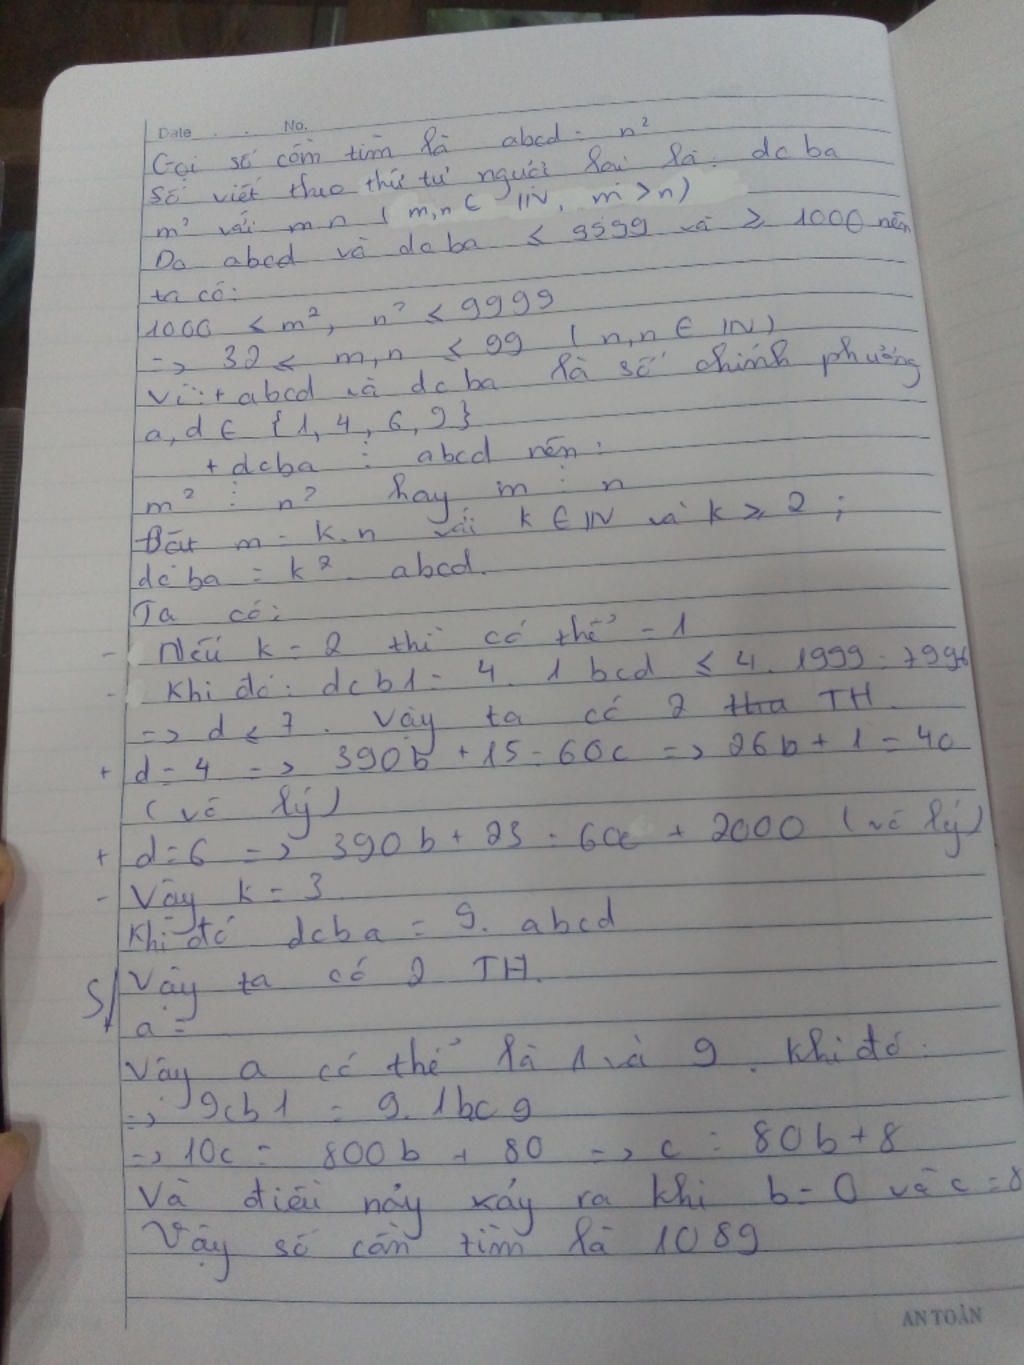 Date . . No.
Gọi số cần tìm là abcd = n²
Số viết theo thứ tự người lai là: dcba
m² với m n ( m,n ∈ IN, m > n)
Do abcd và dcba ≤ 9999 và ≥ 1000 nên
ta có:
1000 ≤ m², n² ≤ 9999
=> 32 ≤ m,n ≤ 99 ( n,n ∈ IN)
Vì: + abcd và dcba là số chính phương
a,d ∈ {1, 4, 6, 9}
+ dcba ⋮ abcd nên:
m² ⋮ n² hay m ⋮ n
Đặt m = k.n với k ∈ IN và k ≥ 2 ;
dcba = k². abcd.
Ta có:
- Nếu k = 2 thì có thể = 1
- Khi đó: dcb1 = 4. 1bcd ≤ 4. 1999 = 7996
=> d ≤ 7. Vậy ta có 2 TH.
+ d = 4 => 390b + 15 = 60c => 26b + 1 = 4c
( vô lý)
+ d = 6 => 390b + 23 = 60c + 2000 ( vô lý)
- Vậy k = 3
Khi đó dcba = 9. abcd
S/ Vậy ta có 2 TH.
+ a =
Vậy a có thể là 1 và 9. Khi đó:
=> 9cb1 = 9. 1bc9
=> 10c = 800b + 80 => c = 80b + 8
Và điều này xảy ra khi b = 0 và c = 8
Vậy số cần tìm là 1089
AN TOÀN